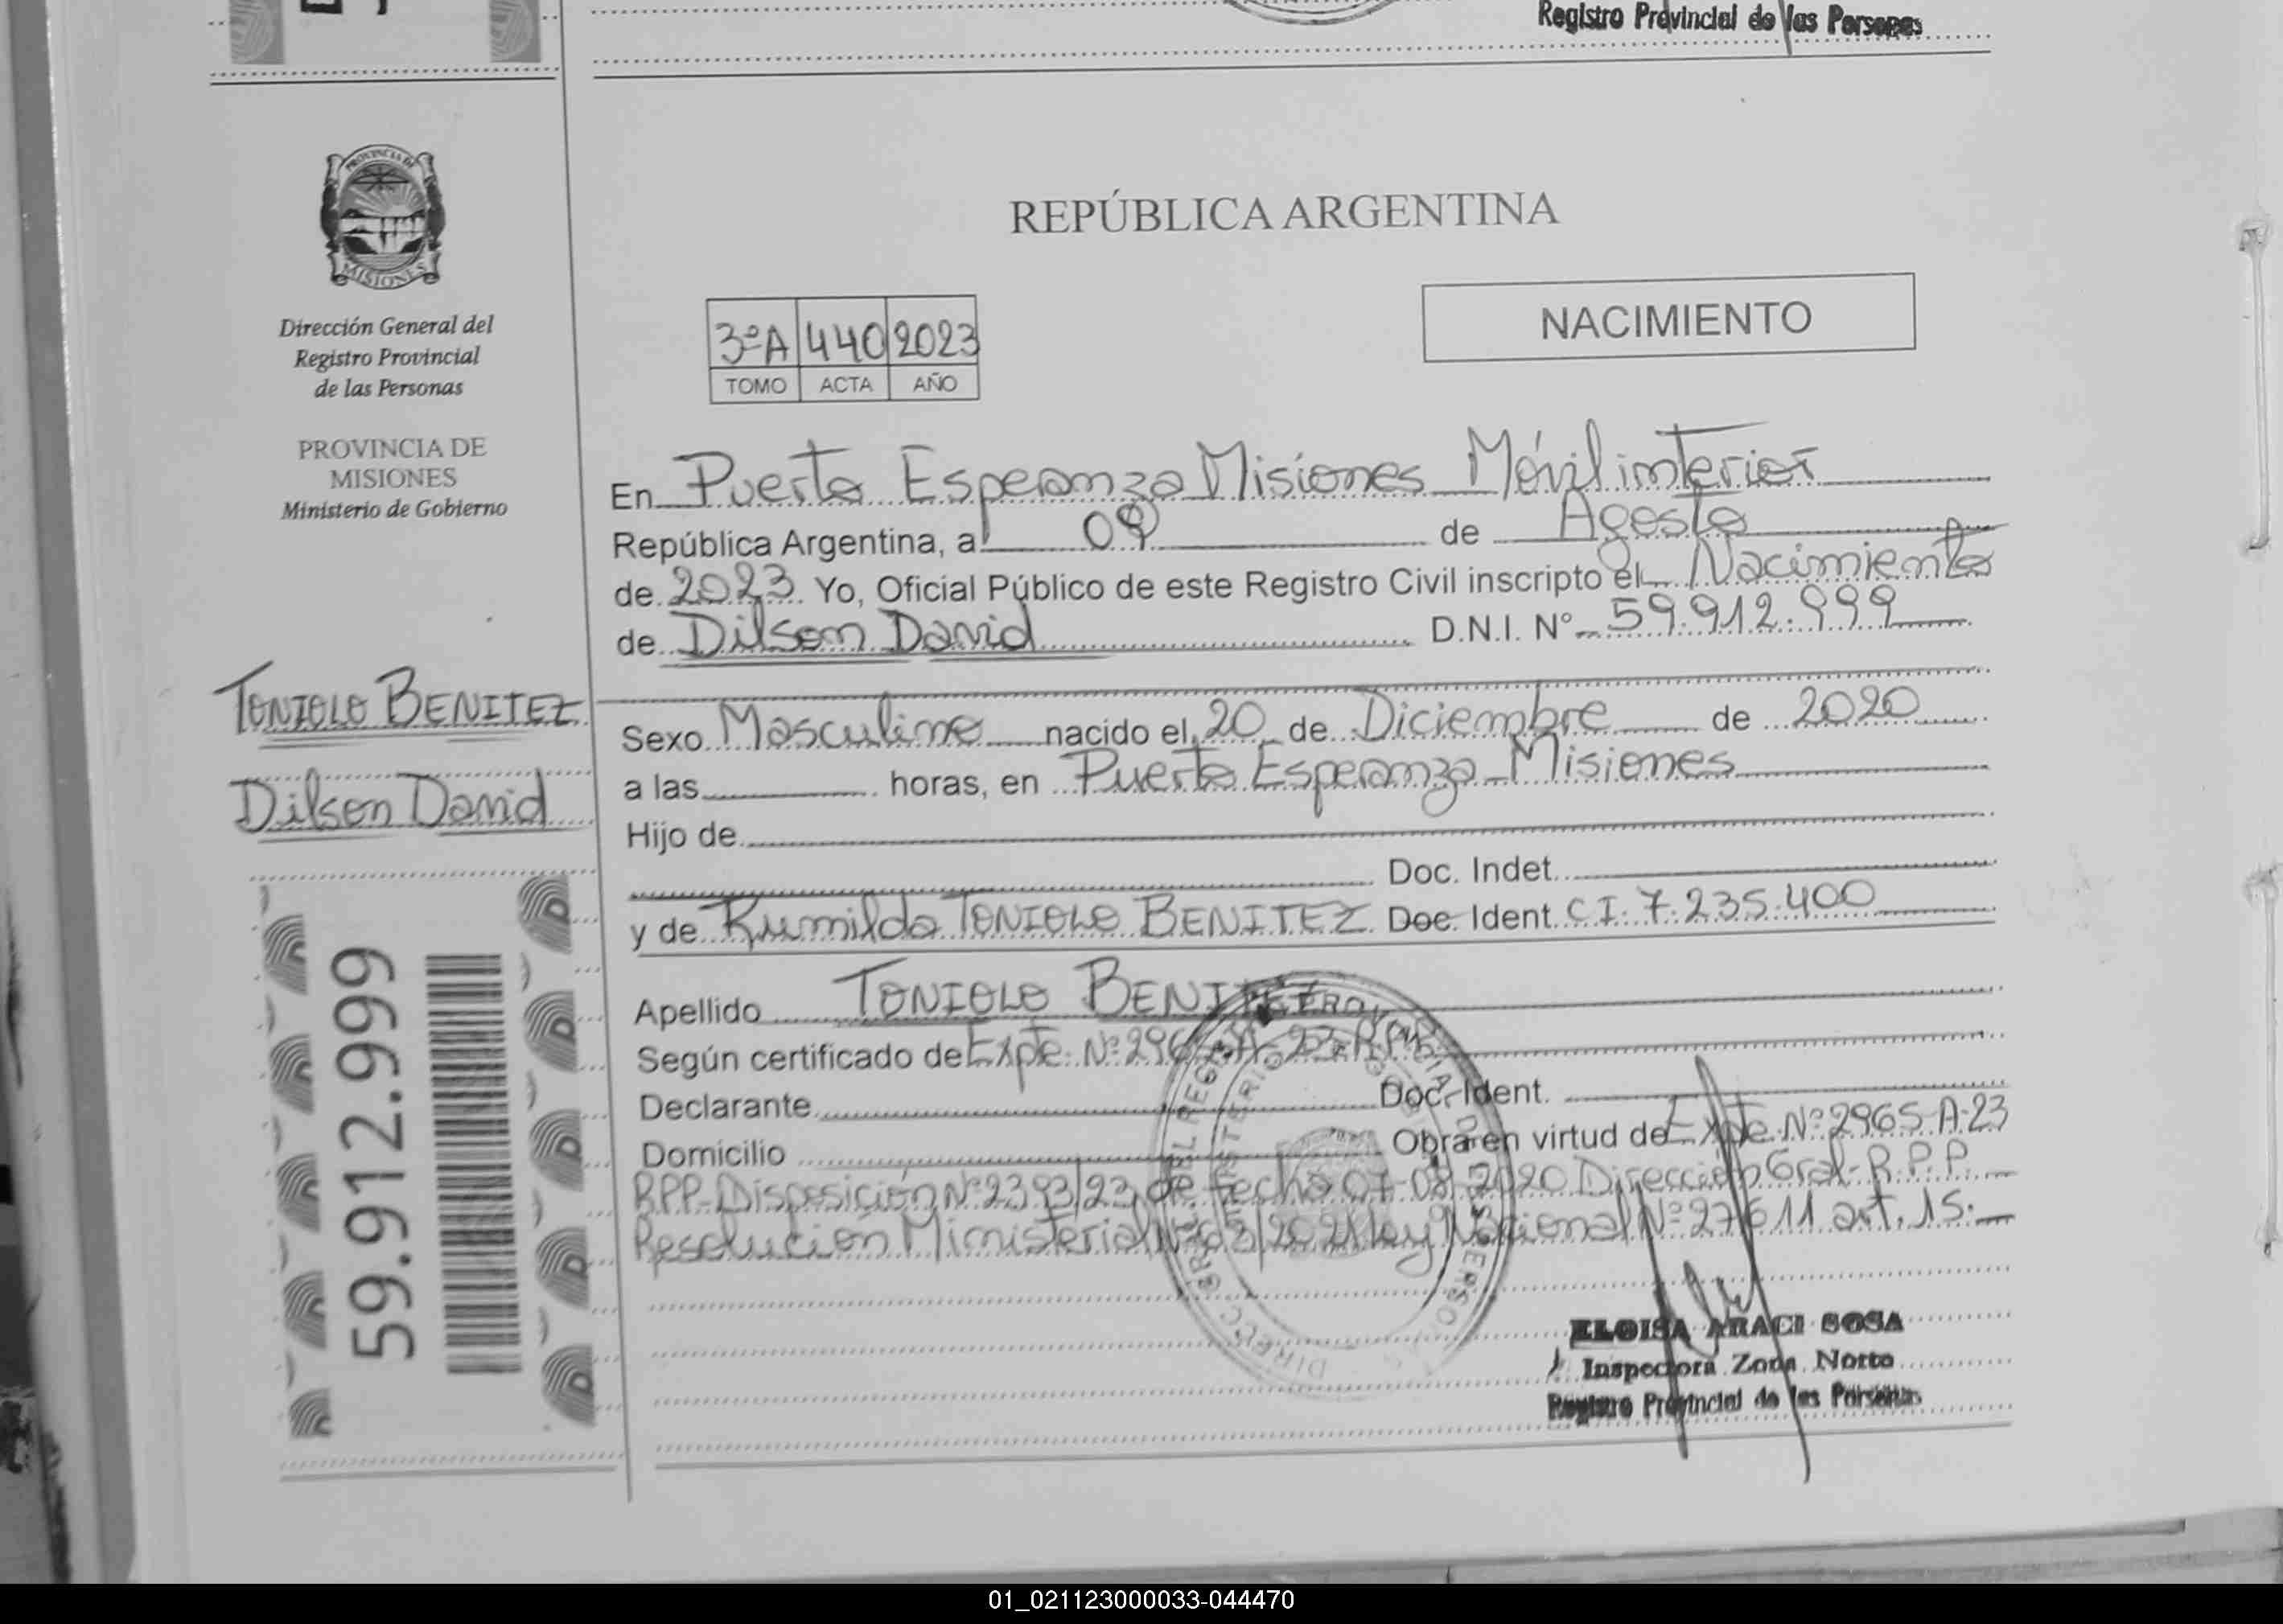 Registro Provincial de las Personas
PROVINCIA DE
MISIONES
Dirección General del
Registro Provincial
de las Personas
PROVINCIA DE
MISIONES
Ministerio de Gobierno
TONIOLO BENITEZ
Dilson David
59.912.999
REPÚBLICA ARGENTINA
NACIMIENTO
3ºA 440 2023
TOMO ACTA AÑO
En Puerto Esperanza Misiones Móvil interior
República Argentina, a 09 de Agosto
de 2023 Yo, Oficial Público de este Registro Civil inscripto el Nacimiento
de Dilson David D.N.I. Nº 59.912.999
Sexo Masculino nacido el 20 de Diciembre de 2020
a las horas, en Puerto Esperanza Misiones
Hijo de
Doc. Indet.
y de Rumilda TONIOLO BENITEZ Doc. Ident. C I. 7.235.400
Apellido TONIOLO BENITEZ
Según certificado de Expte. Nº 2965-A-23-RPP
Declarante Doc. Ident.
Domicilio Obrar en virtud de Expte Nº 2965-A-23
RPP-Disposición Nº 2393/23 de fecha 07-08-2020 Dirección Gral-R.P.P.
Resolución Ministerial /2021 Ley Nacional Nº 27611 art. 15.
ELOISA ARACI SOSA
Inspectora Zona Norte
Registro Provincial de las Personas
01_021123000033-044470